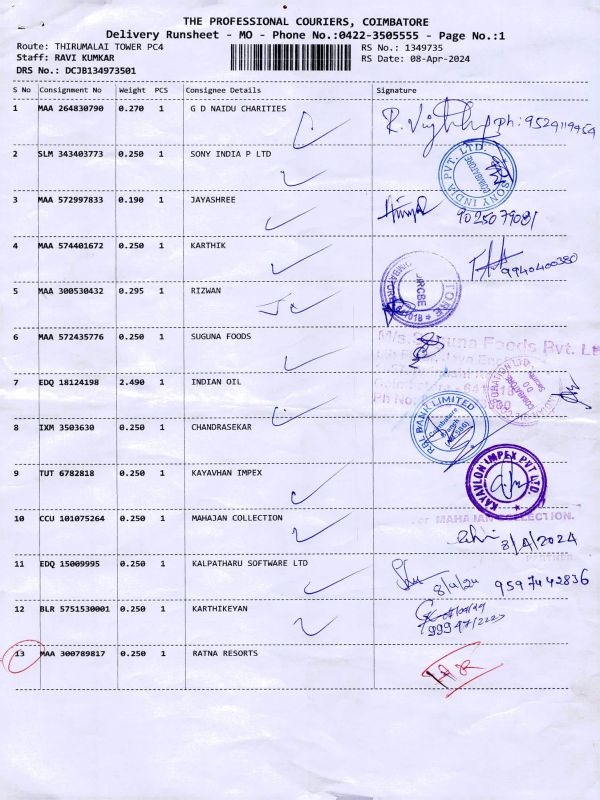 THE PROFESSIONAL COURIERS, COIMBATORE
Delivery Runsheet - MO - Phone No.:0422-3505555 - Page No.:1
Route: THIRUMALAI TOWER PC4
RS No.: 1349735
Staff: RAVI KUMKAR
RS Date: 08-Apr-2024
DRS No.: DCJB134973501
S No Consignment No Weight PCS Consignee Details Signature
1 MAA 264830790 0.270 1 G D NAIDU CHARITIES ph: 9524119464
2 SLM 343403773 0.250 1 SONY INDIA P LTD
SONY INDIA PVT. LTD.
COIMBATORE
3 MAA 572997833 0.190 1 JAYASHREE
4 MAA 574401672 0.250 1 KARTHIK 9940400380
5 MAA 300530432 0.295 1 RIZWAN
6 MAA 572435776 0.250 1 SUGUNA FOODS
M/s. Suguna Foods Pvt. Lt
7 EDQ 18124198 2.490 1 INDIAN OIL
8 IXM 3503630 0.250 1 CHANDRASEKAR
RBL BANK LIMITED
Coimbatore
9 TUT 6782818 0.250 1 KAYAVHAN IMPEX
KAYAVLON IMPEX PVT LTD.
10 CCU 101075264 0.250 1 MAHAJAN COLLECTION
For MAHAJAN COLLECTION.
8/4/2024
PARTNER
11 EDQ 15009995 0.250 1 KALPATHARU SOFTWARE LTD 8/4/24 9597442836
12 BLR 5751530001 0.250 1 KARTHIKEYAN
13 MAA 300789817 0.250 1 RATNA RESORTS